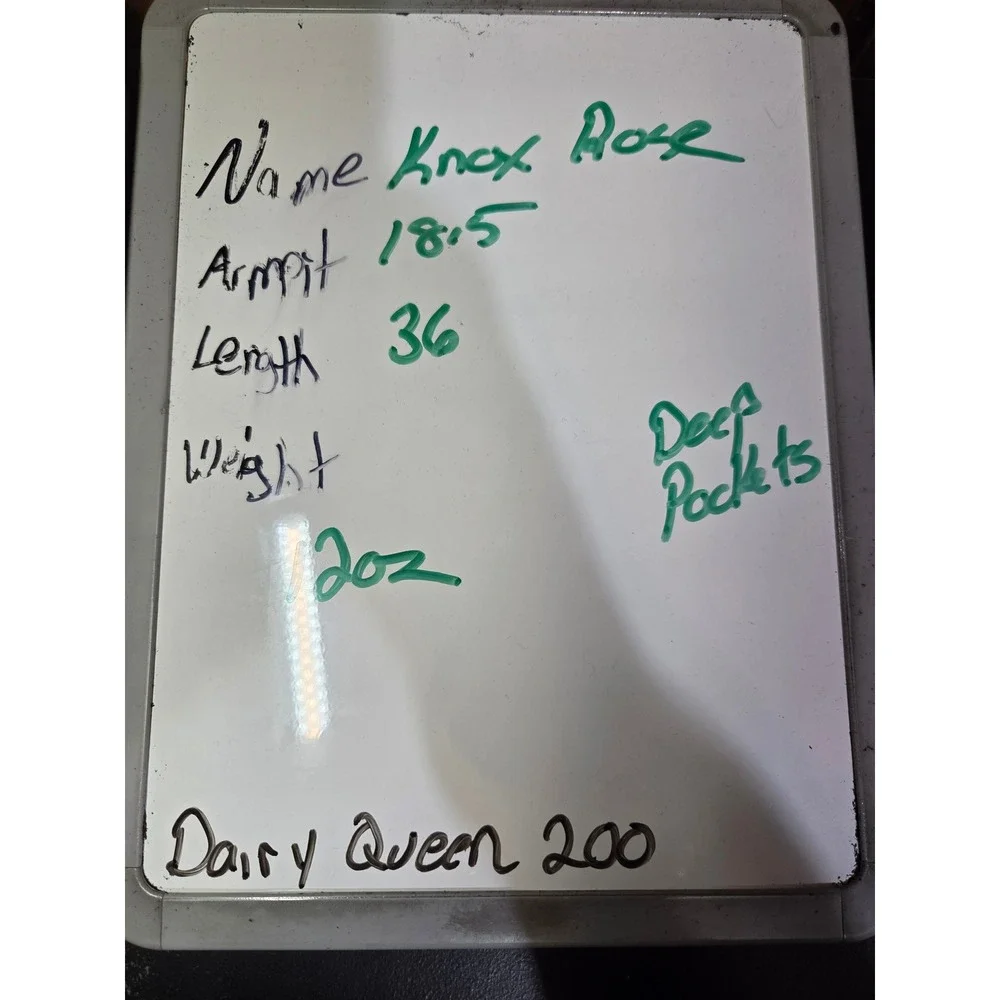 Name Knox Rose
Armpit 18.5
Length 36
Weight
12oz
Deep
Pockets
Dairy Queen 200